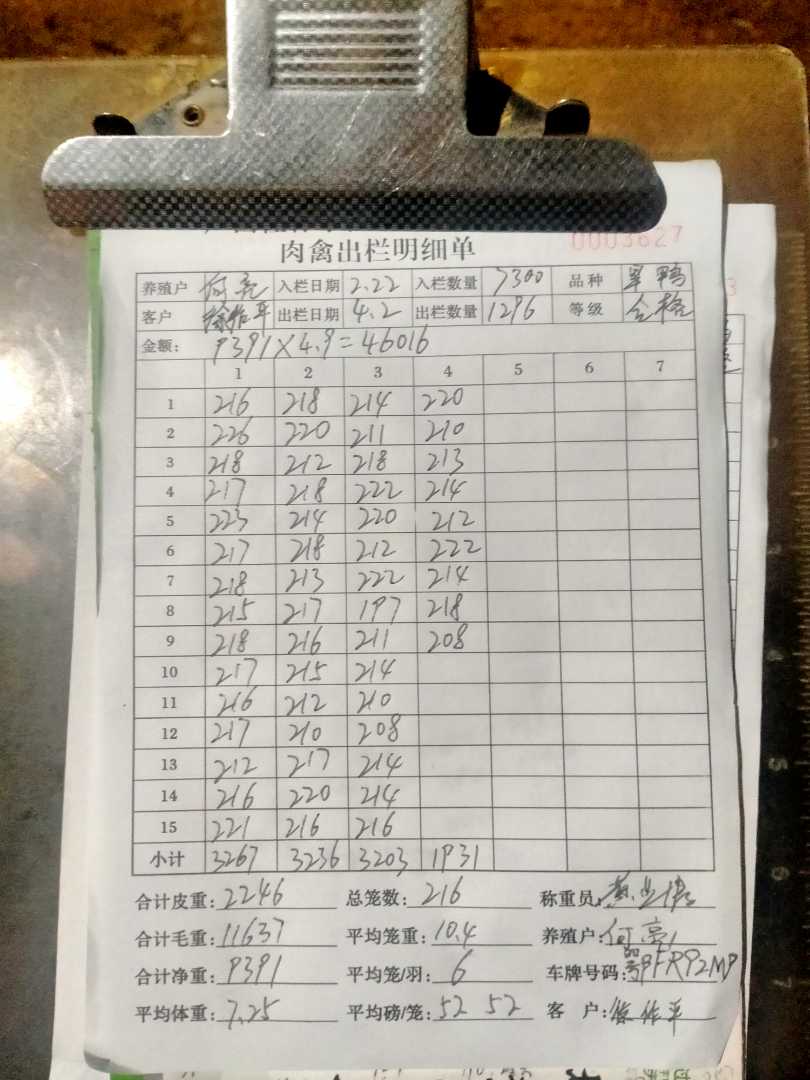 肉禽出栏明细单
0003627
养殖户 何亮 入栏日期 2.22 入栏数量 7300 品种 旱鸭
客户 徐作平 出栏日期 4.2 出栏数量 1296 等级 合格
金额: 9391×4.9=46016
1 2 3 4 5 6 7
1 216 218 214 220
2 226 220 211 210
3 218 212 218 213
4 217 218 222 214
5 223 214 220 212
6 217 218 212 222
7 218 213 222 214
8 215 217 197 218
9 218 216 211 208
10 217 215 214
11 216 212 210
12 217 210 208
13 212 217 214
14 216 220 214
15 221 216 216
小计 3267 3236 3203 1931
合计皮重: 2246 总笼数: 216 称重员:
合计毛重: 11637 平均笼重: 10.4 养殖户: 何亮
合计净重: 9391 平均笼/羽: 6 车牌号码:
平均体重: 7.25 平均磅/笼: 52 52 客户: 徐作平